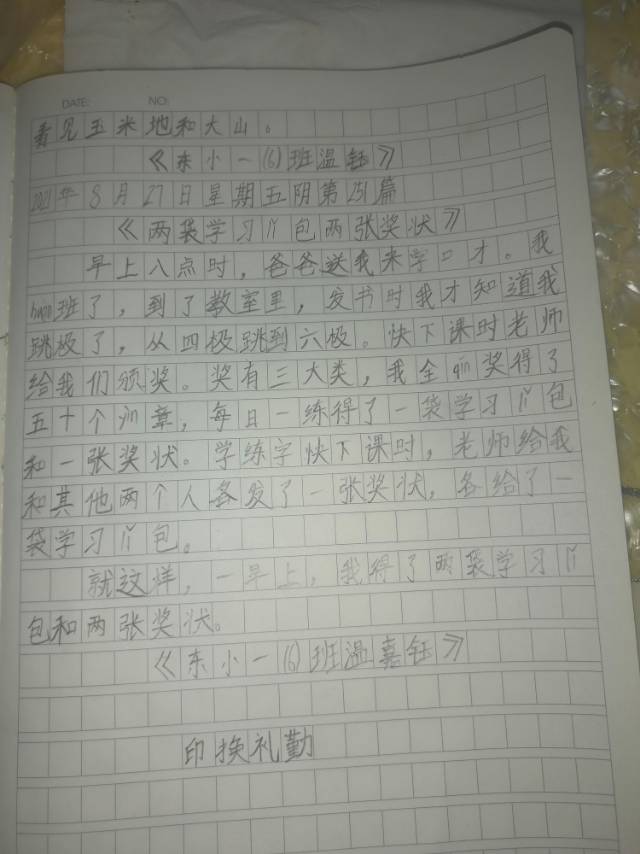 DATE: NO:
看见玉米地和大山。
《东小一(6)班温钰》
2021年8月27日星期五阴第251篇
《两袋学习六包两张奖状》
早上八点时，爸爸送我来学口才。我
huan班了，到了教室里，发书时我才知道我
跳极了，从四极跳到六极。快下课时老师
给我们颁奖。奖有三大类，我全qin奖得了
五十个yin章，每日一练得了一袋学习
包
和一张奖状。学练字快下课时，老师给我
和其他两个人各发了一张奖状，各给了一
袋学习
包。
就这样，一早上，我得了两袋学习
包和两张奖状。
《东小一(6)班温嘉钰》
印换礼勤